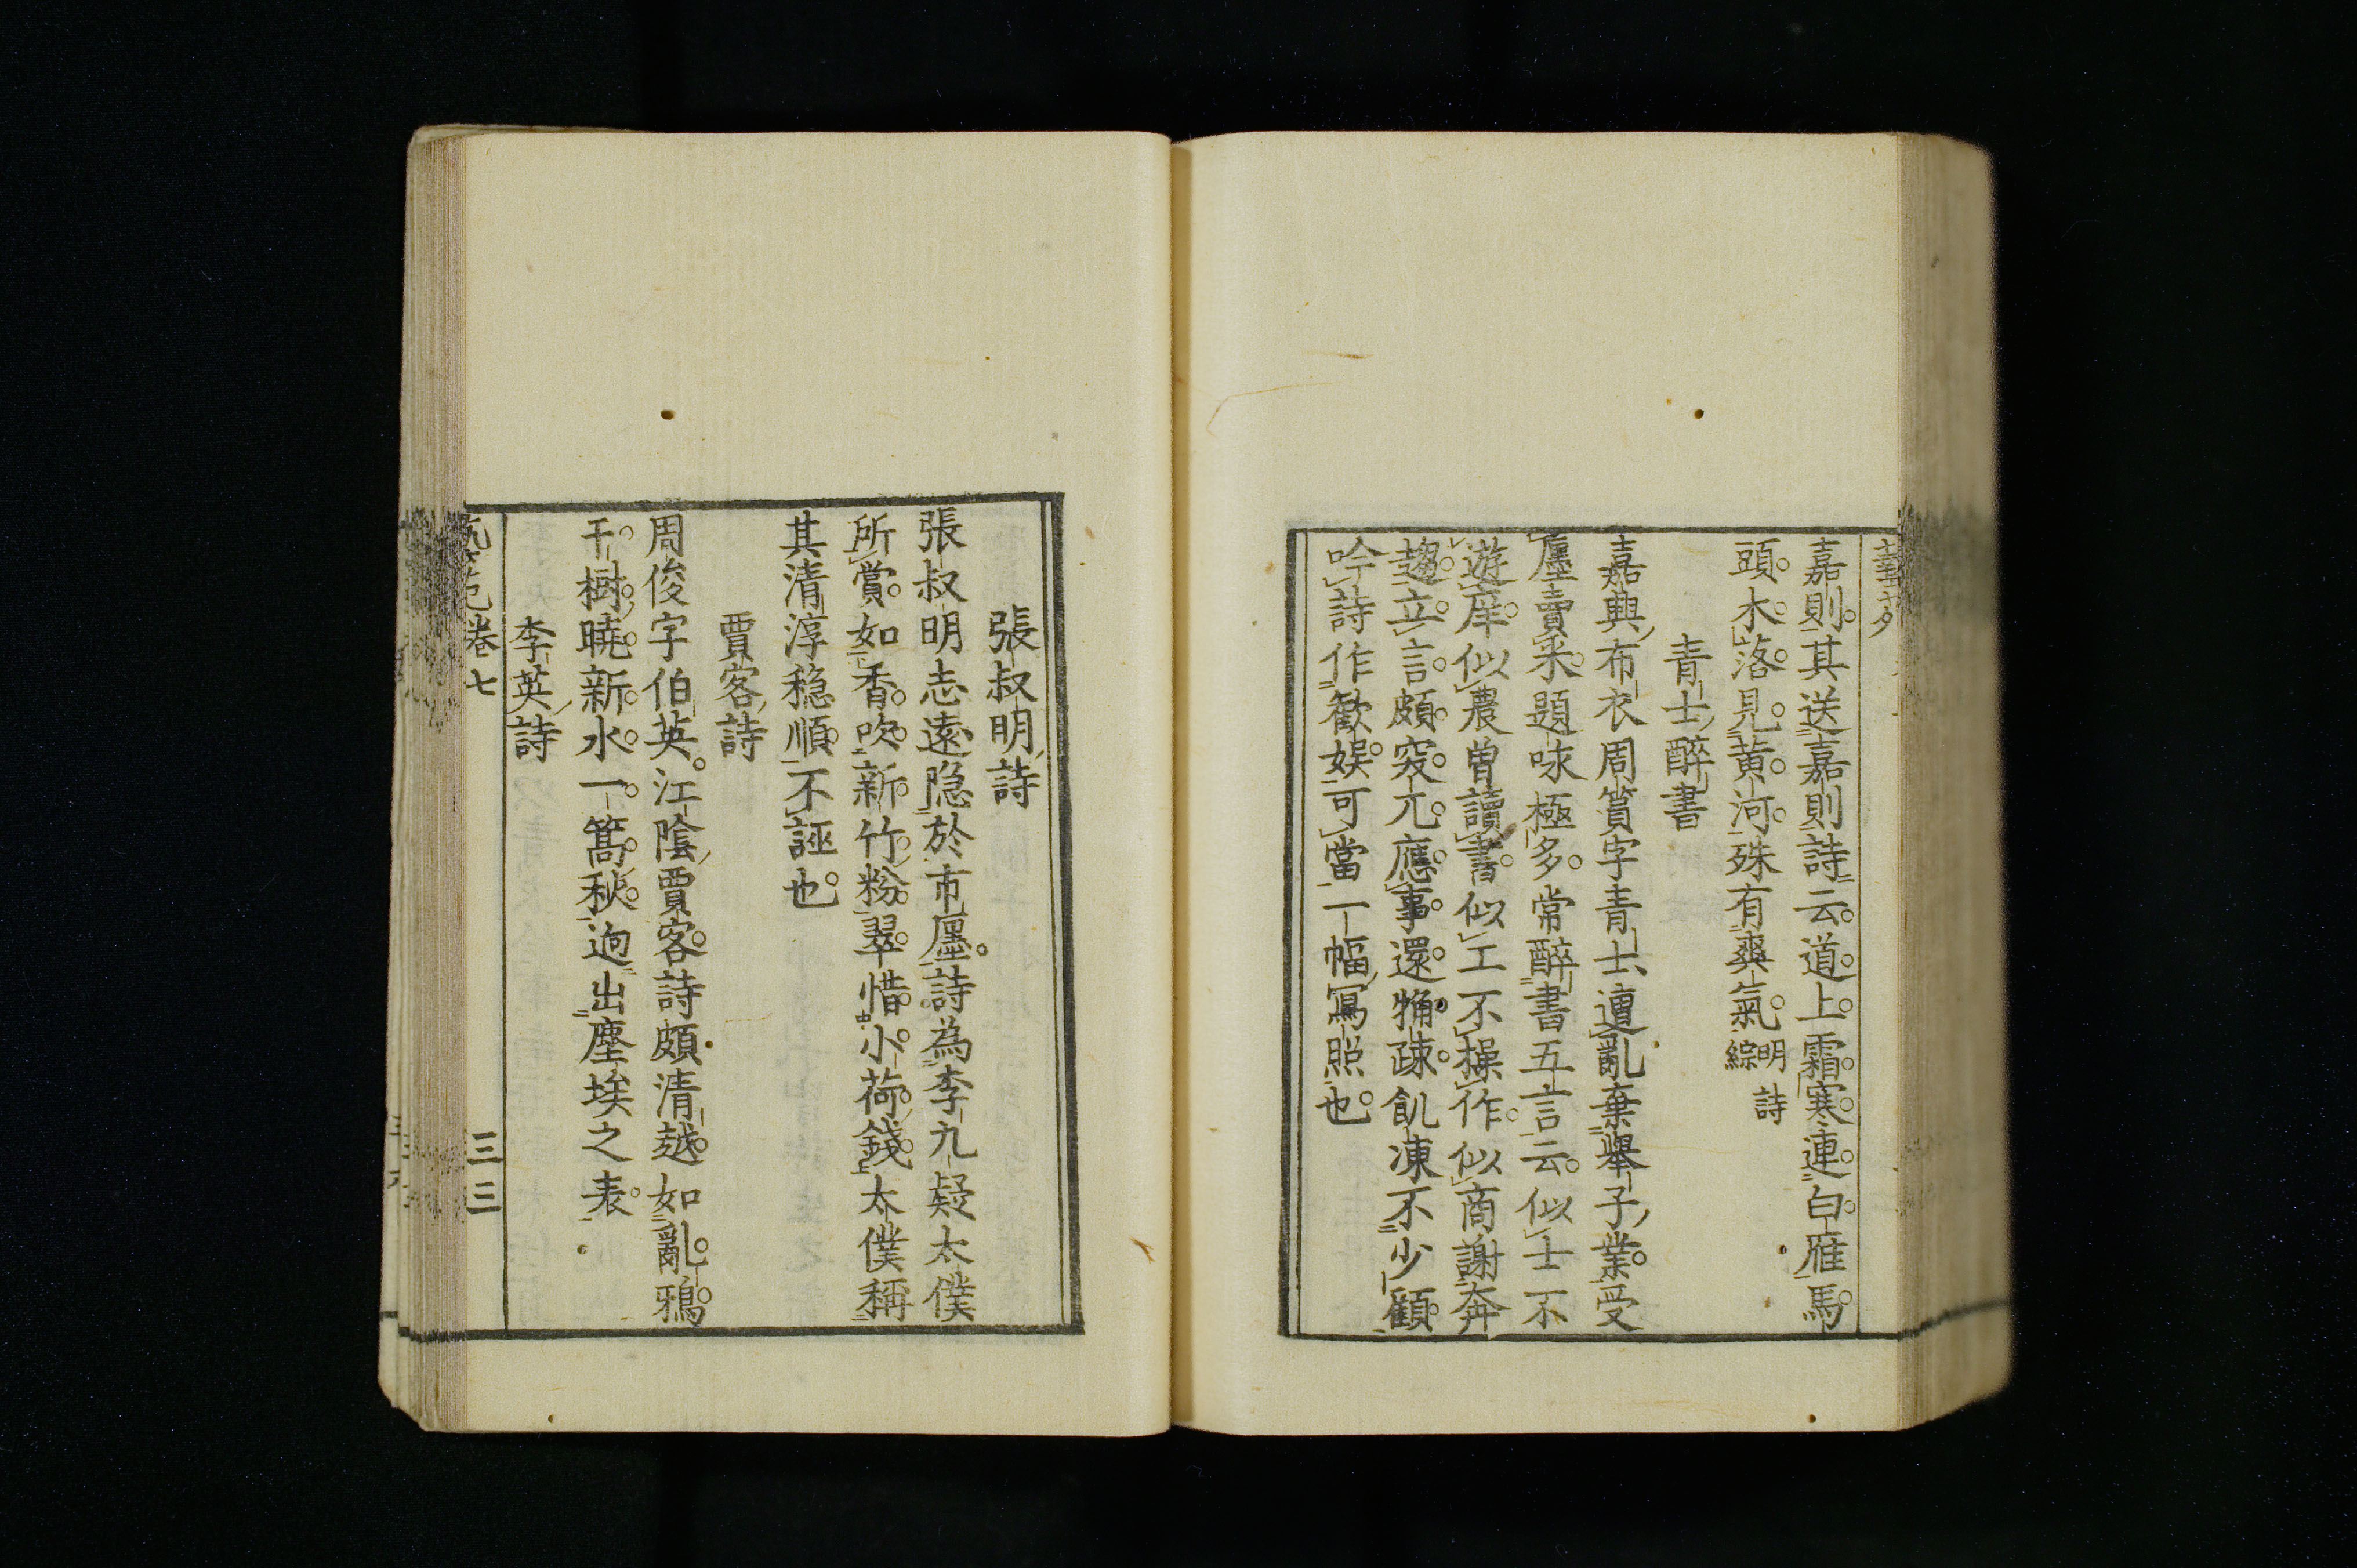 嘉則其送嘉則詩云道上霜寒連白雁馬
頭木落見黄河殊有爽氣明詩綜
青士醉書
嘉興布衣周篔字青士遭亂棄舉子業受
廛賣米題咏極多常醉書五言云似士不
遊庠似農曽讀書似工不操作似商謝奔
趨立言頗突兀應事還觕疎飢凍不少顧
吟詩作歡娯可當一幅寫照也
張叔明詩
張叔明志遠隐於市廛詩為李九疑太僕
所賞如香吹新竹粉翠惜小荷錢太僕稱
其清淳穏順不誣也
賈客詩
周俊字伯英江陰賈客詩頗清越如亂鴉
千樹曉新水一篙秋逈出塵埃之表
李英詩
卷七
三三